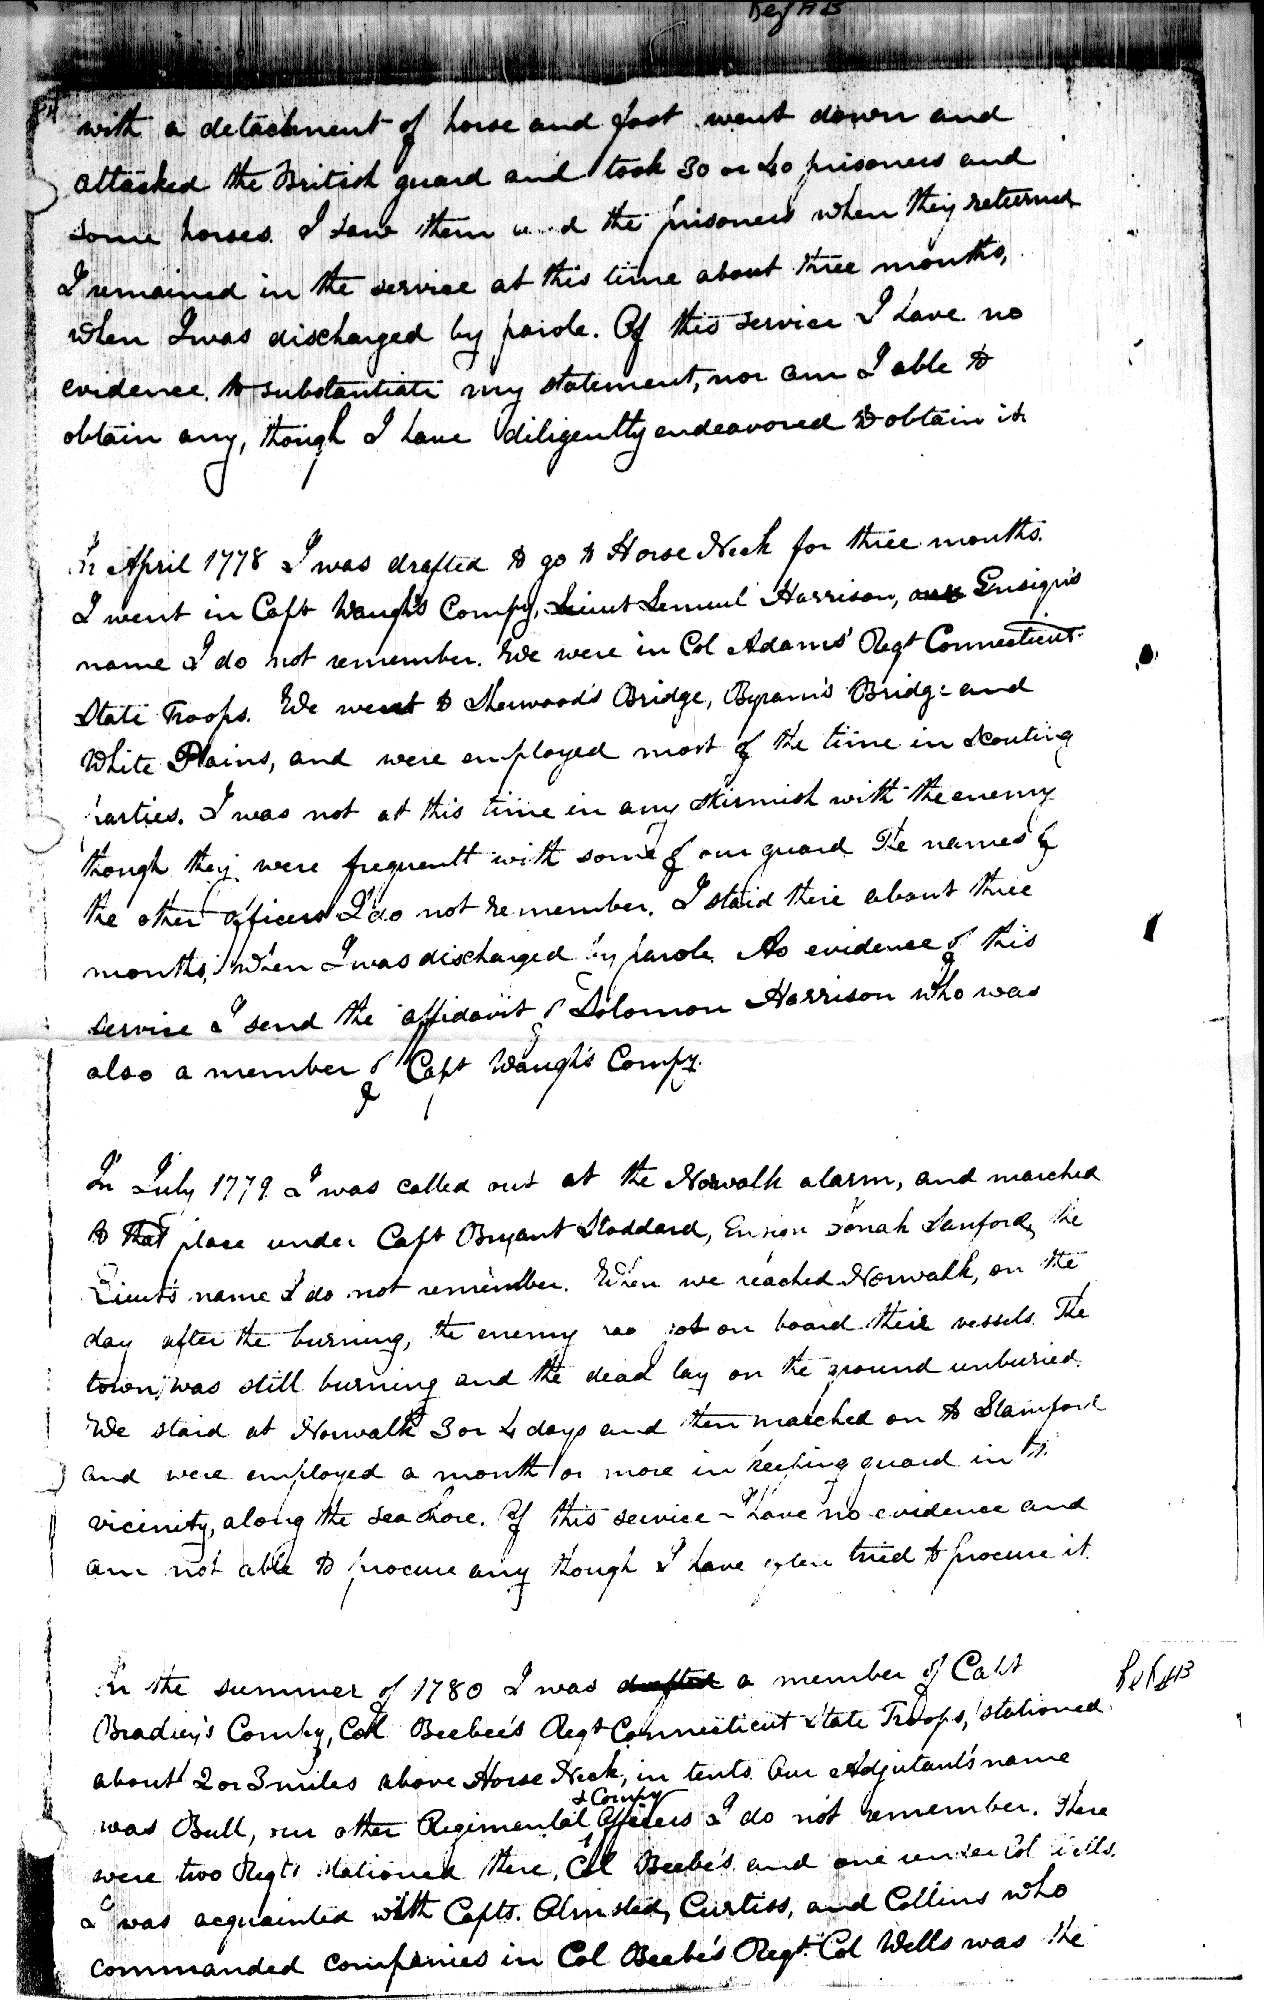 with a detachment of horse and foot went down and
attacked the British guard and took 30 or 40 prisoners and
some horses. I saw them and the prisoners when they returned
I remained in the service at this time about three months,
when I was discharged by parole. Of this service I have no
evidence to substantiate my statement, nor am I able to
obtain any, though I have diligently endeavored to obtain it.
In April 1778 I was drafted to go to Horse Neck for three months.
I went in Capt Waugh's Compy, Lieut Lemuel Harrison, our Ensign's
name I do not remember. We were in Col Adams' Regt Connecticut
State Troops. We went to Sherwood's Bridge, Byram's Bridge and
White Plains, and were employed most of the time in scouting
parties. I was not at this time in any skirmish with the enemy
though they were frequent with some of our guard. The names of
the other officers I do not remember. I staid there about three
months, when I was discharged by parole. As evidence of this
service I send the affidavit of Solomon Harrison who was
also a member of Capt Waugh's Compy.
In July 1779 I was called out at the Norwalk alarm, and marched
to that place under Capt Bryant Stoddard, Ensign Jonah Sanford, the
Lieut's name I do not remember. When we reached Norwalk, on the
day after the burning, the enemy had got on board their vessels. The
town was still burning and the dead lay on the ground unburied.
We staid at Norwalk 3 or 4 days and then marched on to Stamford
and were employed a month or more in keeping guard in its
vicinity, along the sea shore. Of this service I have no evidence and
am not able to procure any though I have often tried to procure it.
In the summer of 1780 I was drafted a member of Capt
Bradley's Compy, Col Beebee's Regt Connecticut State Troops, stationed
about 2 or 3 miles above Horse Neck, in tents. Our Adjutant's name
& Compy
was Bull, our other Regimental Officers I do not remember. There
were two Regts stationed there, Col Beebe's and one under Col Wells.
I was acquainted with Capts. Olmsted, Curtiss, and Collins who
commanded companies in Col Beebe's Regt. Col Wells was the